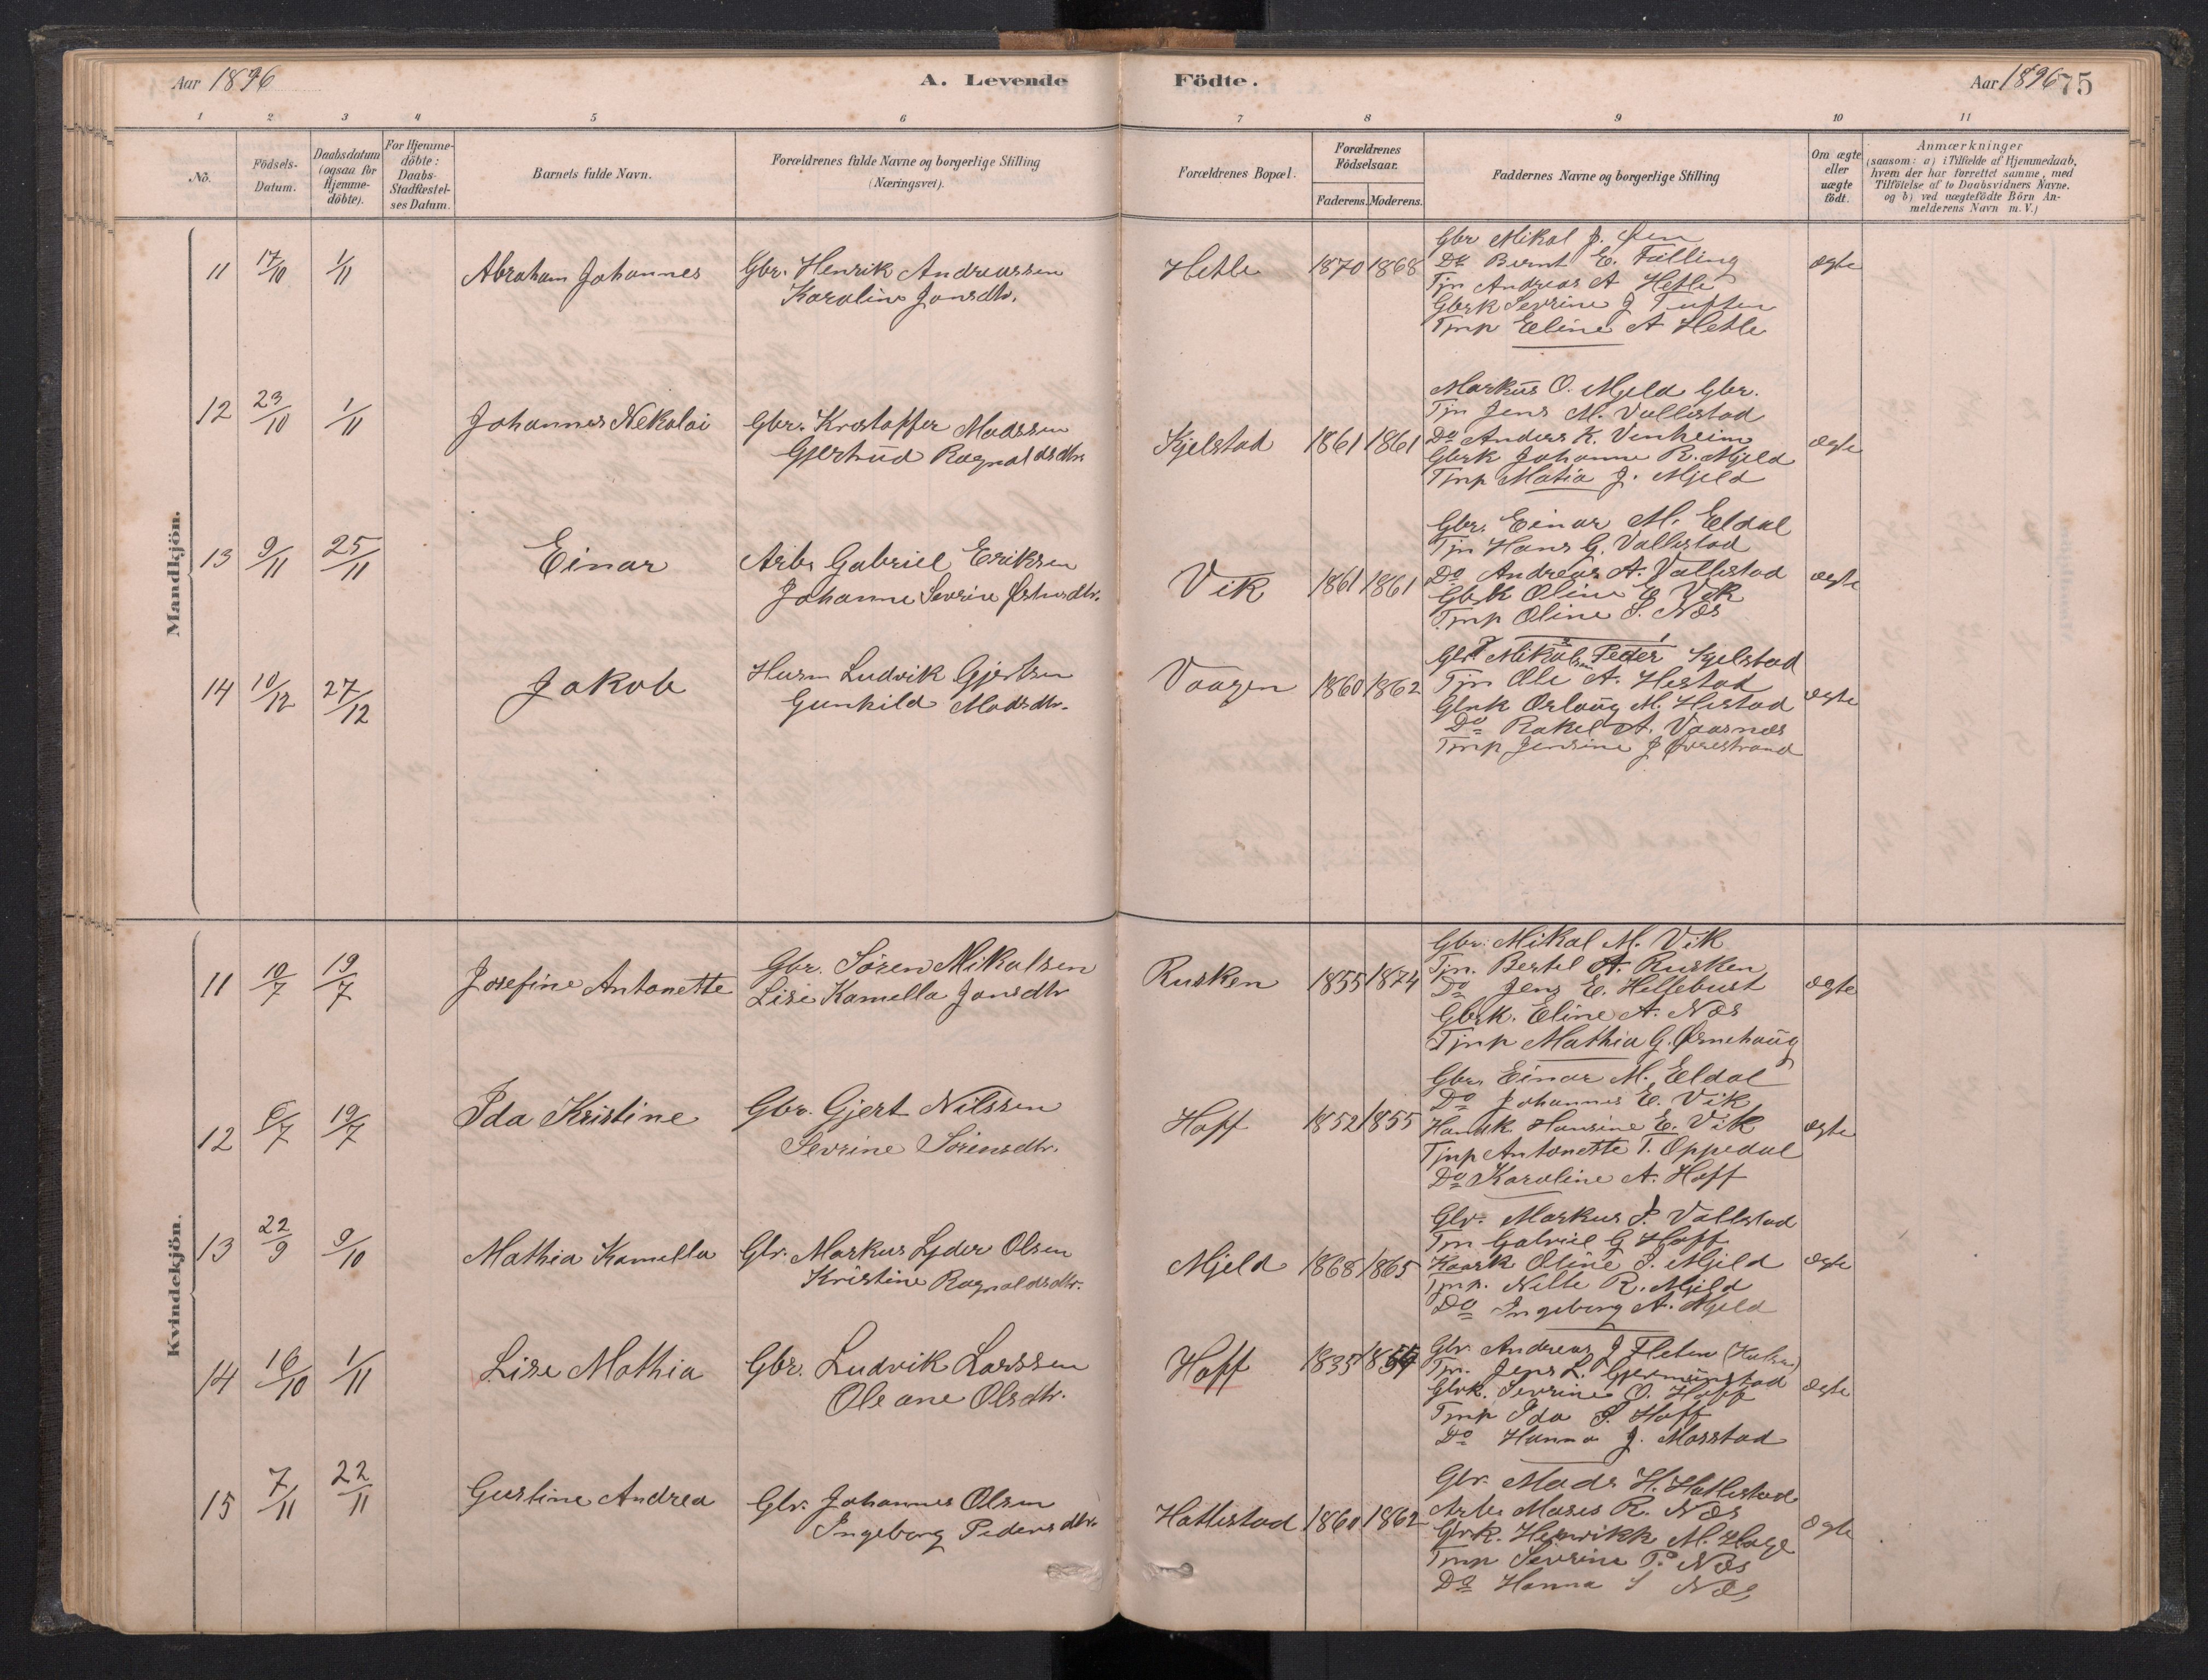 Aar 1896
A. Levende Födte.
Aar 1896 75
1 2 3 4 5 6 7 8 9 10 11
No.
Födsels-Datum.
Daabsdatum (ogsaa for Hjemme-döbte).
For Hjemme-döbte: Daabs-Stadfæstel-ses Datum.
Barnets fulde Navn.
Forældrenes fulde Navne og borgerlige Stilling
(Næringsvei).
Forældrenes Bopæl.
Forældrenes Födselsaar.
Faderens. Moderens.
Faddernes Navne og borgerlige Stilling
Om ægte eller uægte födt.
Anmærkninger
(saasom: a) i Tilfælde af Hjemmedaab,
hvem der har forrettet samme, med
Tilföielse af to Daabsvidners Navne.
og b) ved uægtefödte Börn An-
melderens Navn m. V.)
Mandkjön.
11 17/10 1/11 Abraham Johannes
Gbr. Henrik Andreassen
Karoline Jonsdtr.
Hetle 1870 1868
Gbr Mikal J. Øen
Do Bernt E. Fälling
Tjn Andreas A Hetle
Gbrk Sevrine J Tuften
Tjnp Eline A Hetle
ægte
12 23/10 1/11 Johannes Nekolai
Gbr. Kristoffer Madssen
Gjertrud Ragnaldsdtr.
Kjelstad 1861 1861
Markus O. Mjeld Gbr.
Tjn Jens M. Vallestad
Do Anders K. Venheim
Gbrk Johanne R. Mjeld
Tjnp Matia J. Mjeld
ægte
13 9/11 25/11 Einar
Arb. Gabriel Eriksen
Johanne Sevrine
Vik 1861 1861
Gbr. Einar M. Eldal
Tjn Hans G. Vallestad
Do Andreas A. Vallestad
Gbrk Oline E Vik
Tjnp Oline S. Næs
ægte
14 10/12 27/12 Jakob
Husm Ludvik Gjertsen
Gunhild Madsdtr.
Vaagen 1860 1862
Gbr Mikalsen Peder Kjelstad
Tjn Ole A. Hestad
Gbrk Orlaug M. Hestad
Do Rakel A. Vaasnes
Tjnp Jensine J Øvrestrand
ægte
Kvindekjön.
11 10/7 19/7 Josefine Antonette
Gbr. Sören Mikalsen
Lise Kamella Jonsdtr
Rusken 1855 1874
Gbr. Mikal M. Vik
Tjn. Bertel A. Rusken
Do Jens E. Hellebust
Gbrk. Eline A. Næs
Tjnp Mathia G. Ørnehaug
ægte
12 6/7 19/7 Ida Kristine
Gbr. Gjert Nilssen
Sevrine Sörensdtr.
Hoff 1852 1855
Gbr. Einar M. Eldal
Do Johannes E. Vik
Handk. Hansine E. Vik
Tjnp Antonette T. Oppedal
Do Karoline A. Hoff
ægte
13 22/9 9/10 Mathea Kamella
Gbr. Markus Lyder Olsen
Kristine Ragnaldsdtr.
Mjeld 1868 1865
Gbr. Markus P. Vallestad
Tjn Gabriel G Hoff
Kaark Oline J. Mjeld
Tjnp. Nille R. Mjeld
Do Ingeborg A. Mjeld
ægte
14 16/10 1/11 Lise Mathia
Gbr. Ludvik Larssen
Oleane Olsdtr.
Hoff 1835 1854
Gbr. Andreas J Fleten
Tjn. Jens L. Gjermunstad
Gbrk. Sevrine O. Hoff
Tjnp Ida P. Hoff
Do Hanna J. Masstad
ægte
15 7/11 22/11 Gustine Andrea
Gbr. Johannes Olsen
Ingeborg Pedersdtr.
Hatlestad 1860 1862
Gbr. Mads H. Hatlestad
Arb. Moses R. Næs
Gbrk. Henrikke M. Hage
Tjnp Sevrine P. Næs
Do Hanna S Næs
ægte